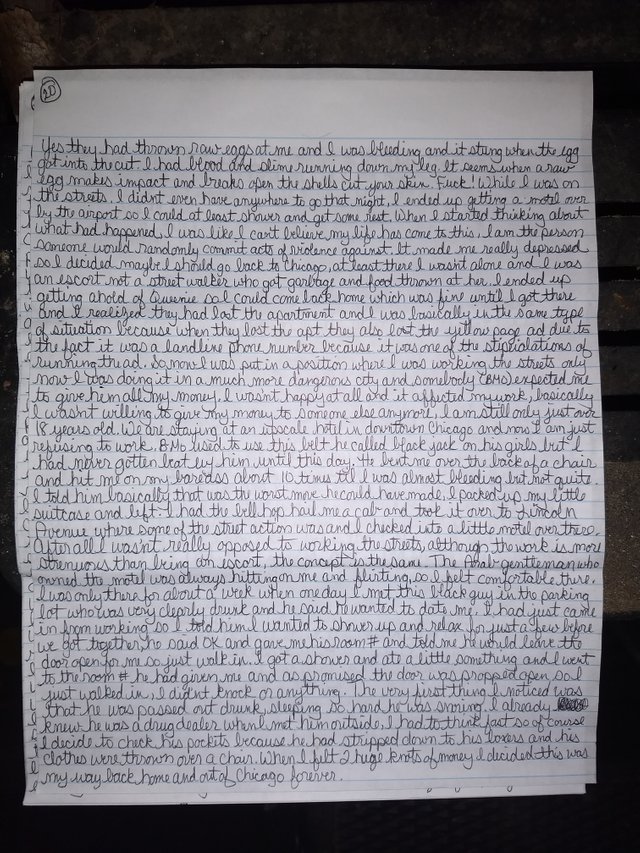 20
Yes they had thrown raw eggs at me and I was bleeding and it stung when the egg
got into the cut. I had blood and slime running down my leg. It seems when a raw
egg makes impact and breaks open the shells cut your skin. Fuck! While I was on
the streets, I didnt even have anywhere to go that night, I ended up getting a motel over
by the airport so I could at least shower and get some rest. When I started thinking about
what had happened, I was like I cant believe my life has come to this, I am the person
someone would randomly commit acts of violence against. It made me really depressed
so I decided maybe I should go back to Chicago, at least there I wasnt alone and I was
an escort not a street walker who got garbage and food thrown at her. I ended up
getting ahold of Queenie so I could come back home which was fine until I got there
and I realized they had lost the apartment and I was basically in the same type
of situation because when they lost the apt they also lost the yellow page ad due to
the fact it was a landline phone number because it was one of the stipulations of
running the ad. So now I was put in a position where I was working the streets only
now I was doing it in a much more dangerous city and somebody expected me
to give him all my money. I wasnt happy at all and it affected my work, basically
I wasnt willing to give my money to someone else anymore, I am still only just over
18 years old. We are staying at an upscale hotel in downtown Chicago and now I am just
refusing to work. used to use this belt he called black jack on his girls but I
had never gotten beat by him until this day. He bent me over the back of a chair
and hit me on my bare ass about 10 times till I was almost bleeding but not quite.
I told him basically that was the worst move he could have made, I packed up my little
suitcase and left. I had the bell hop hail me a cab and took it over to Lincoln
Avenue where some of the street action was and I checked into a little motel over there.
After all I wasnt really opposed to working the streets, although the work is more
strenuous than being an escort, the concept is the same. The Arab gentleman who
owned the motel was always hitting on me and flirting, so I felt comfortable there.
I was only there for about a week when one day I met this black guy in the parking
lot who was very clearly drunk and he said he wanted to date me. I had just came
in from working so I told him I wanted to shower up and relax for just a few before
we got together, he said OK and gave me his room # and told me he would leave the
door open for me so just walk in. I got a shower and ate a little something and I went
to the room # he had given me and as promised the door was propped open, so I
just walked in, I didnt knock or anything. The very first thing I noticed was
that he was passed out drunk, sleeping so hard he was snoring. I already
knew he was a drug dealer when I met him outside, I had to think fast so of course
I decide to check his pockets because he had stripped down to his boxers and his
clothes were thrown over a chair. When I felt 2 huge knots of money I decided this was
my way back home and out of Chicago forever.